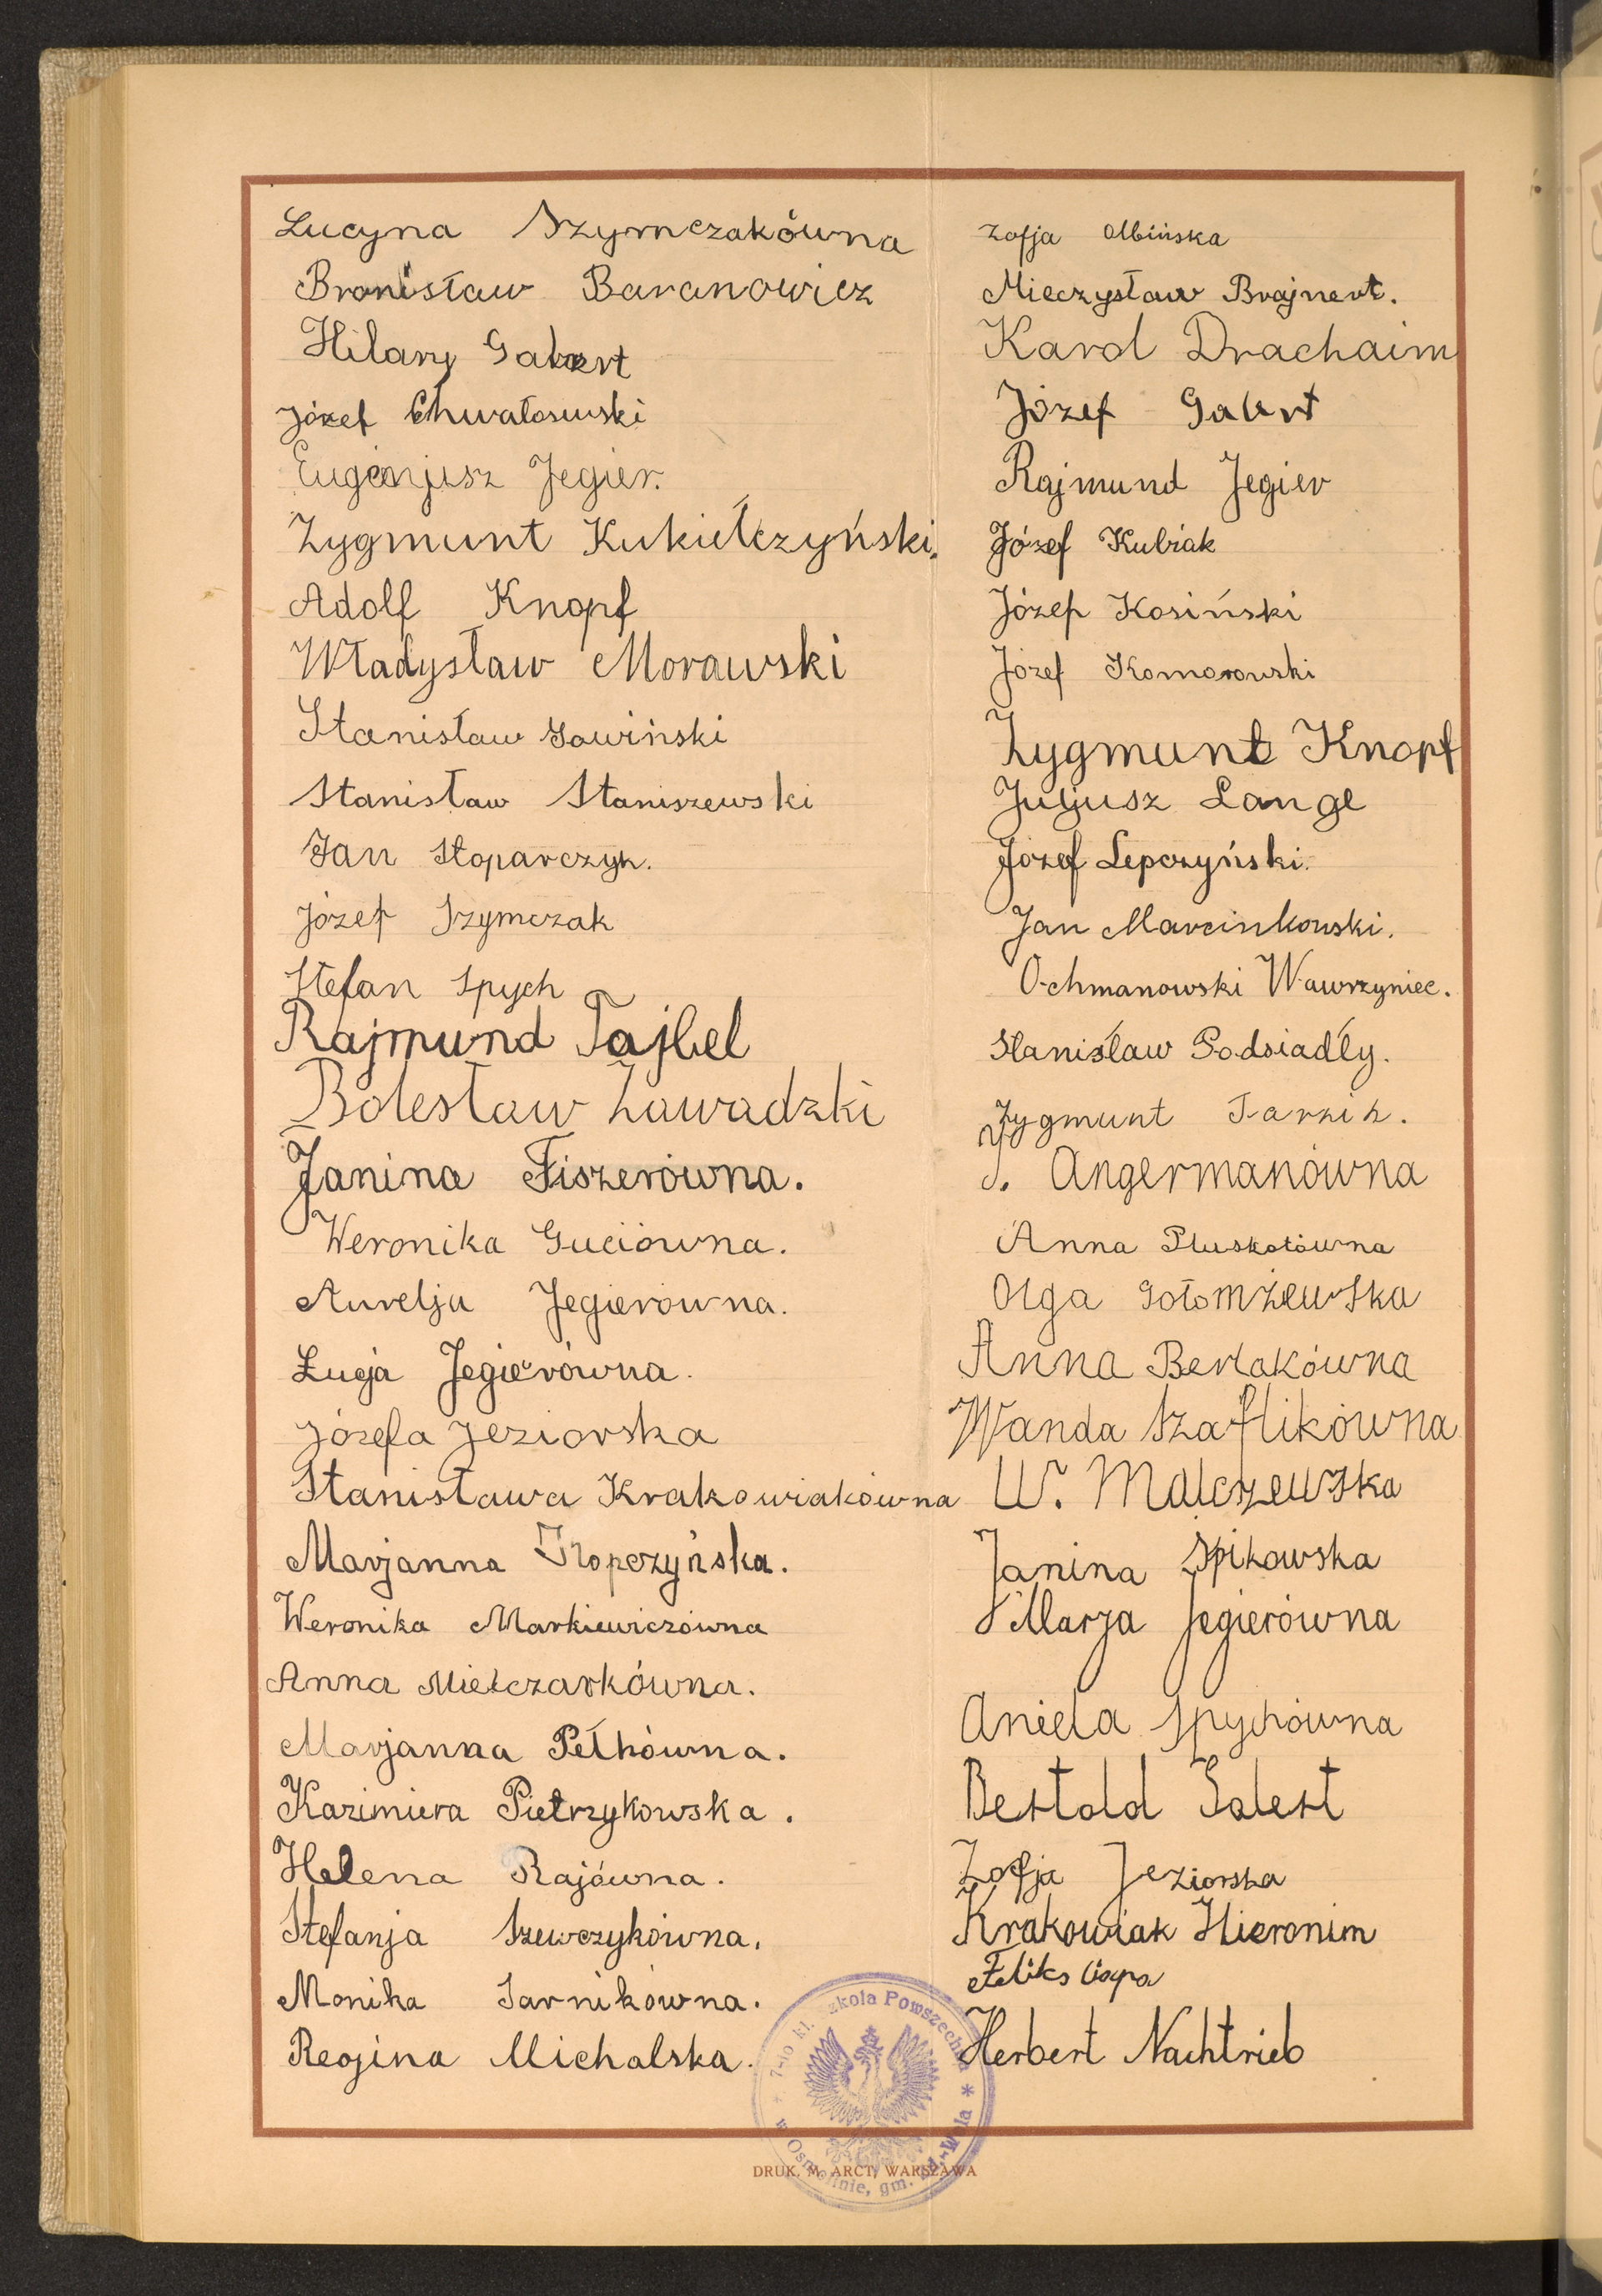 Lucyna Szymczakówna
Bronisław Baranowicz
Hilary Gabert
Józef Chwałosuski
Eugenjusz Jegier.
Zygmunt Kukiełczyński.
Adolf Knopf
Władysław Morawski
Stanisław Sowiński
Stanisław Staniszewski
Jan Stoparczyk.
Józef Szymczak
Stefan Spych
Rajmund Tajbel
Bolesław Zawadzki
Janina Fiszerówna.
Weronika Guciówna.
Aurelja Jegierówna.
Łucja Jegierówna.
Józefa Jeziorska
Stanisława Krakowiakówna
Marjanna Kropczyńska.
Weronika Markiewiczówna
Anna Mielczarkówna.
Marjanna Pełkówna.
Kazimiera Pietrzykowska.
Helena Rajówna.
Stefanja Szewczykówna.
Monika Tarnikówna.
Regina Michalska.
Zofja Olbińska
Mieczysław Brajnert.
Karol Drachaim
Józef Galert
Rajmund Jegier
Józef Kubiak
Józef Kosiński
Józef Komorowski
Zygmunt Knopf
Juljusz Lange
Józef Lepczyński.
Jan Marcinkowski.
Ochmanowski Wawrzyniec.
Stanisław Podsiadły.
Zygmunt Tarnik.
J. Angermanówna
Anna Pluskotówna
Olga Gołomżewska
Anna Berlakówna
Wanda Szaflikówna
W. Malczewska
Janina Spikowska
Marja Jegierówna
Aniela Spychówna
Bertold Galert
Zofja Jeziorska
Krakowiak Hieronim
Feliks Ciopa
Herbert Nachtrieb
7-io kl. Szkoła Powszechna
w Osmolinie, gm.
DRUK. M. ARCT, WARSZAWA